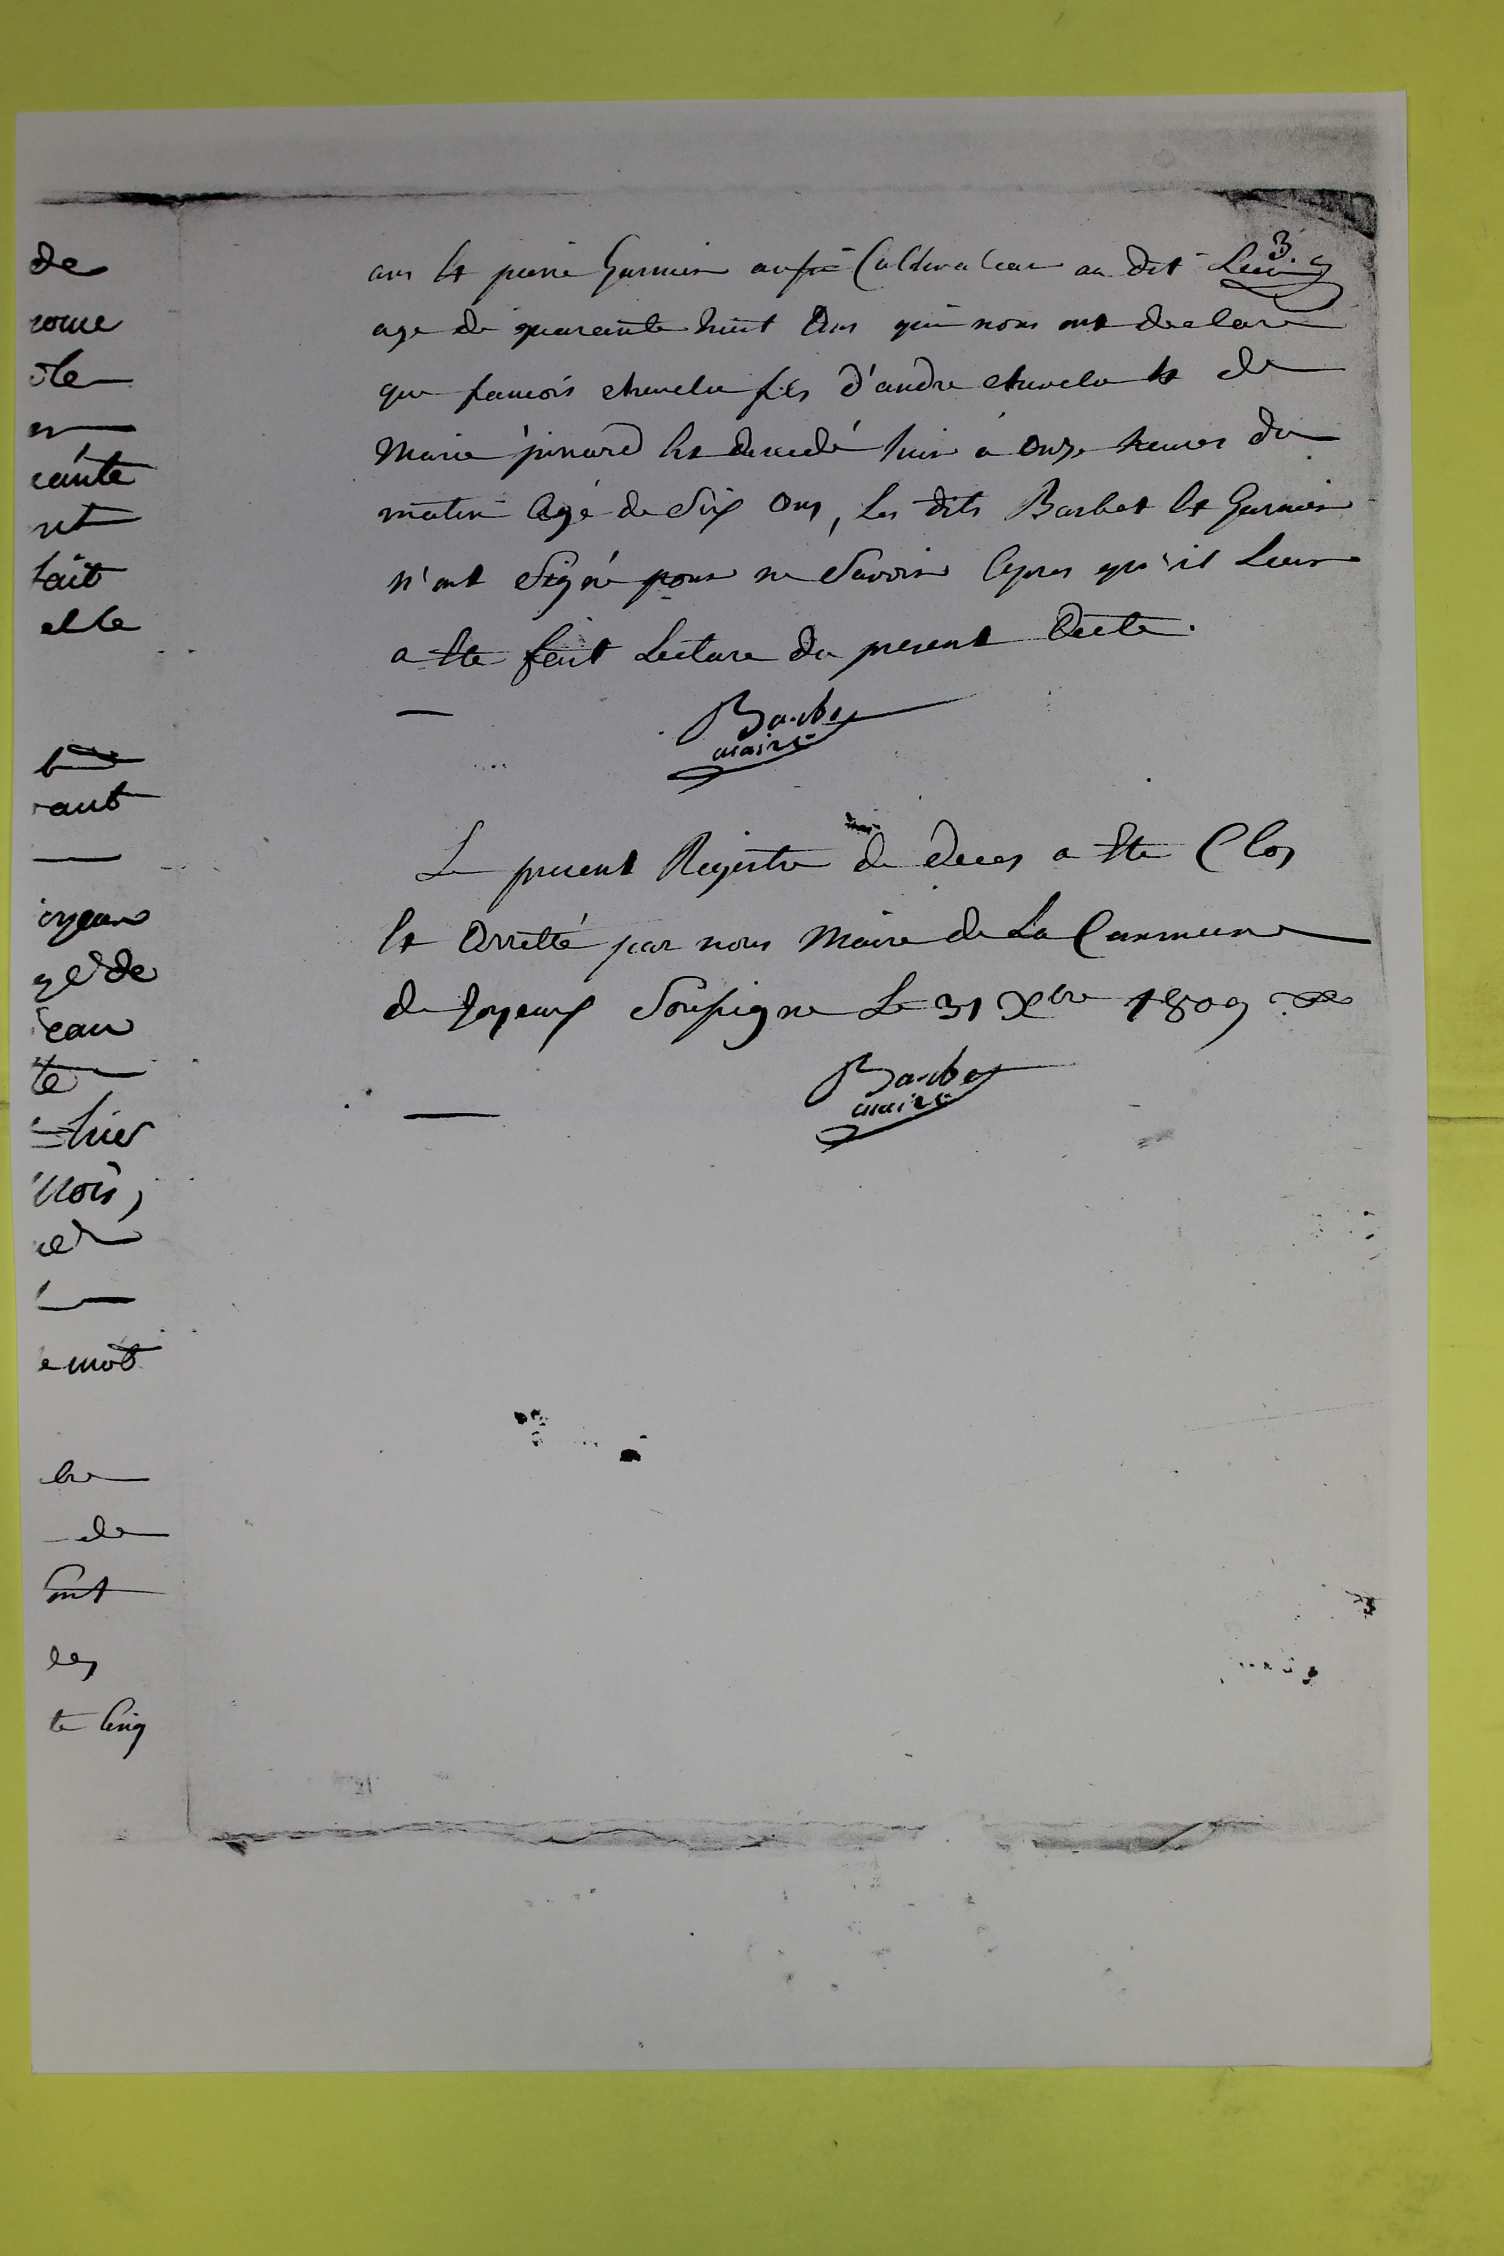 de
rome
ole
en
rante
nt
fait
elle
rant
oyeux
gé de
eau
te
hier
nois,
ce
e mot
bre
de
Sont
les
te Cinq
3.
ans Et pierre Garnier aussi Cultivateur au dit Lieu
age de quarante huit Ans qui nous ont declaré
que francois chevelu fils d'andre chevelu Et de
Marie pinard Est decedé hier à Onze heures du
matin Agé de Six Ans, Les dits Barbet Et Garnier
n'ont Signé pour ne Savoir Apres qu'il Leur
a Ete fait Lecture du present Acte.
Barbet
maire
Le present Registre de deces a Ete Clos
Et Arretté par nous Maire de La Commune
de Joyeux Soussigné Le 31 Xbre 1809
Barbet
maire